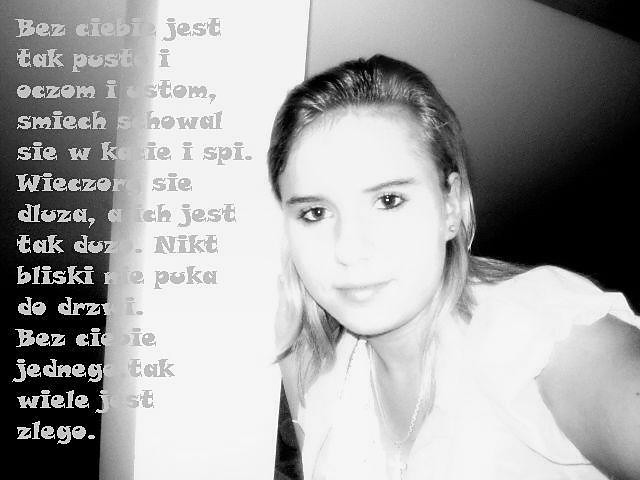 Bez ciebie jest
tak pusto i
oczom i ustom,
smiech schowal
sie w kacie i spi.
Wieczory sie
dluza, a ich jest
tak duzo. Nikt
bliski nie puka
do drzwi.
Bez ciebie
jednego tak
wiele jest
zlego.